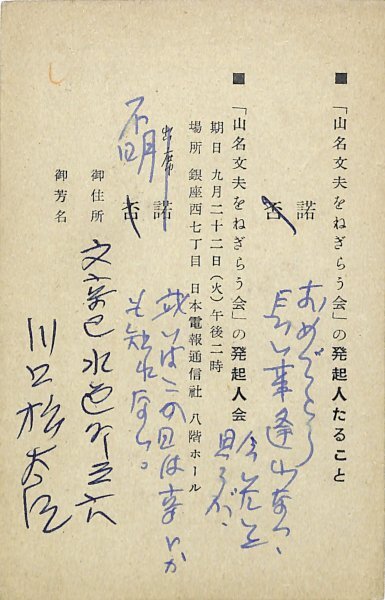 ■「山名文夫をねぎらう会」の発起人たること
諾
否
おめでとう
長い事逢わない、
思うが、
■「山名文夫をねぎらう会」の発起人会
期日 九月二十二日(火)午後二時
場所 銀座西七丁目 日本電報通信社 八階ホール
出席
諾
否
不明
或いはこの日は
も知れない。
御住所 文京区水道
御芳名 川口松太郎